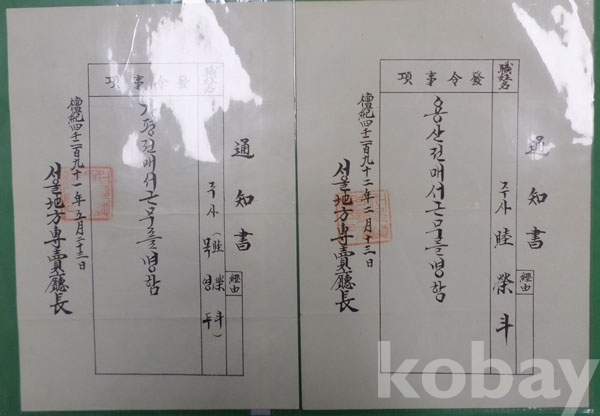 通知書
經由
職姓名
주사 睦榮斗
發令事項
용산전매서근무를명함
檀紀四千二百九十二年二月十三日
서울地方專賣廳長
通知書
經由
職姓名
주사 (睦榮斗)
목영두
發令事項
가평전매서근무를명함
檀紀四千二百九十一年五月二十三日
서울地方專賣廳長
kobay